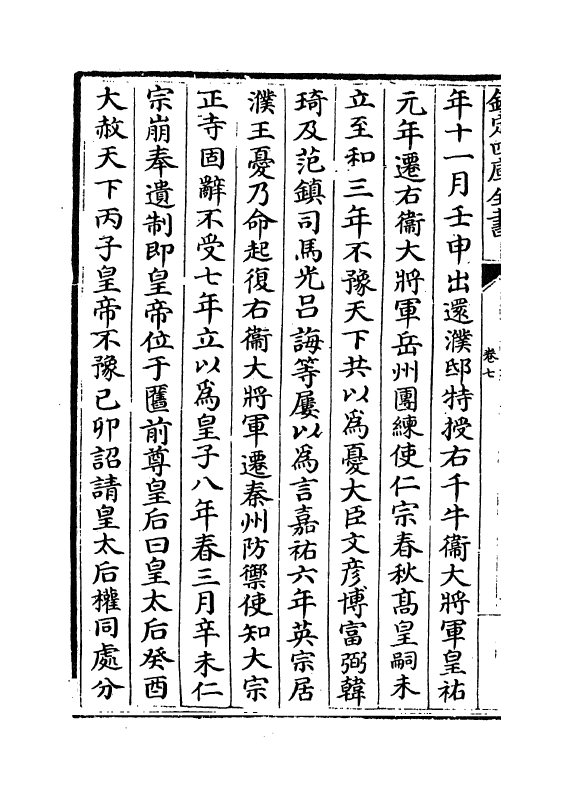 欽定四庫全書
卷七
年十一月壬申出還濮邸特授右千牛衞大將軍皇祐
元年遷右衞大將軍岳州團練使仁宗春秋髙皇嗣未
立至和三年不豫天下共以爲憂大臣文彦博富弼韓
琦及范鎮司馬光吕誨等屢以爲言嘉祐六年英宗居
濮王憂乃命起復右衞大將軍遷秦州防禦使知大宗
正寺固辭不受七年立以爲皇子八年春三月辛未仁
宗崩奉遺制即皇帝位于匶前尊皇后曰皇太后癸酉
大赦天下丙子皇帝不豫己卯詔請皇太后權同處分